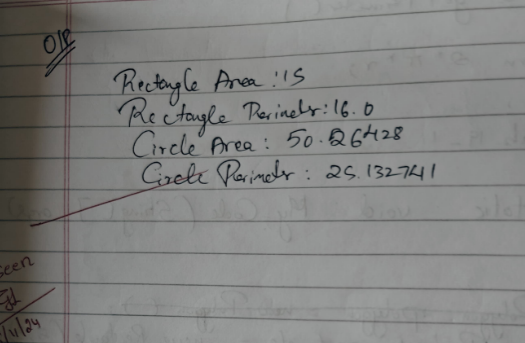 O/P
Rectangle Area : 15
Rectangle Perimeter : 16.0
Circle Area : 50.26428
Circle Perimeter : 25.132741
seen
/11/24